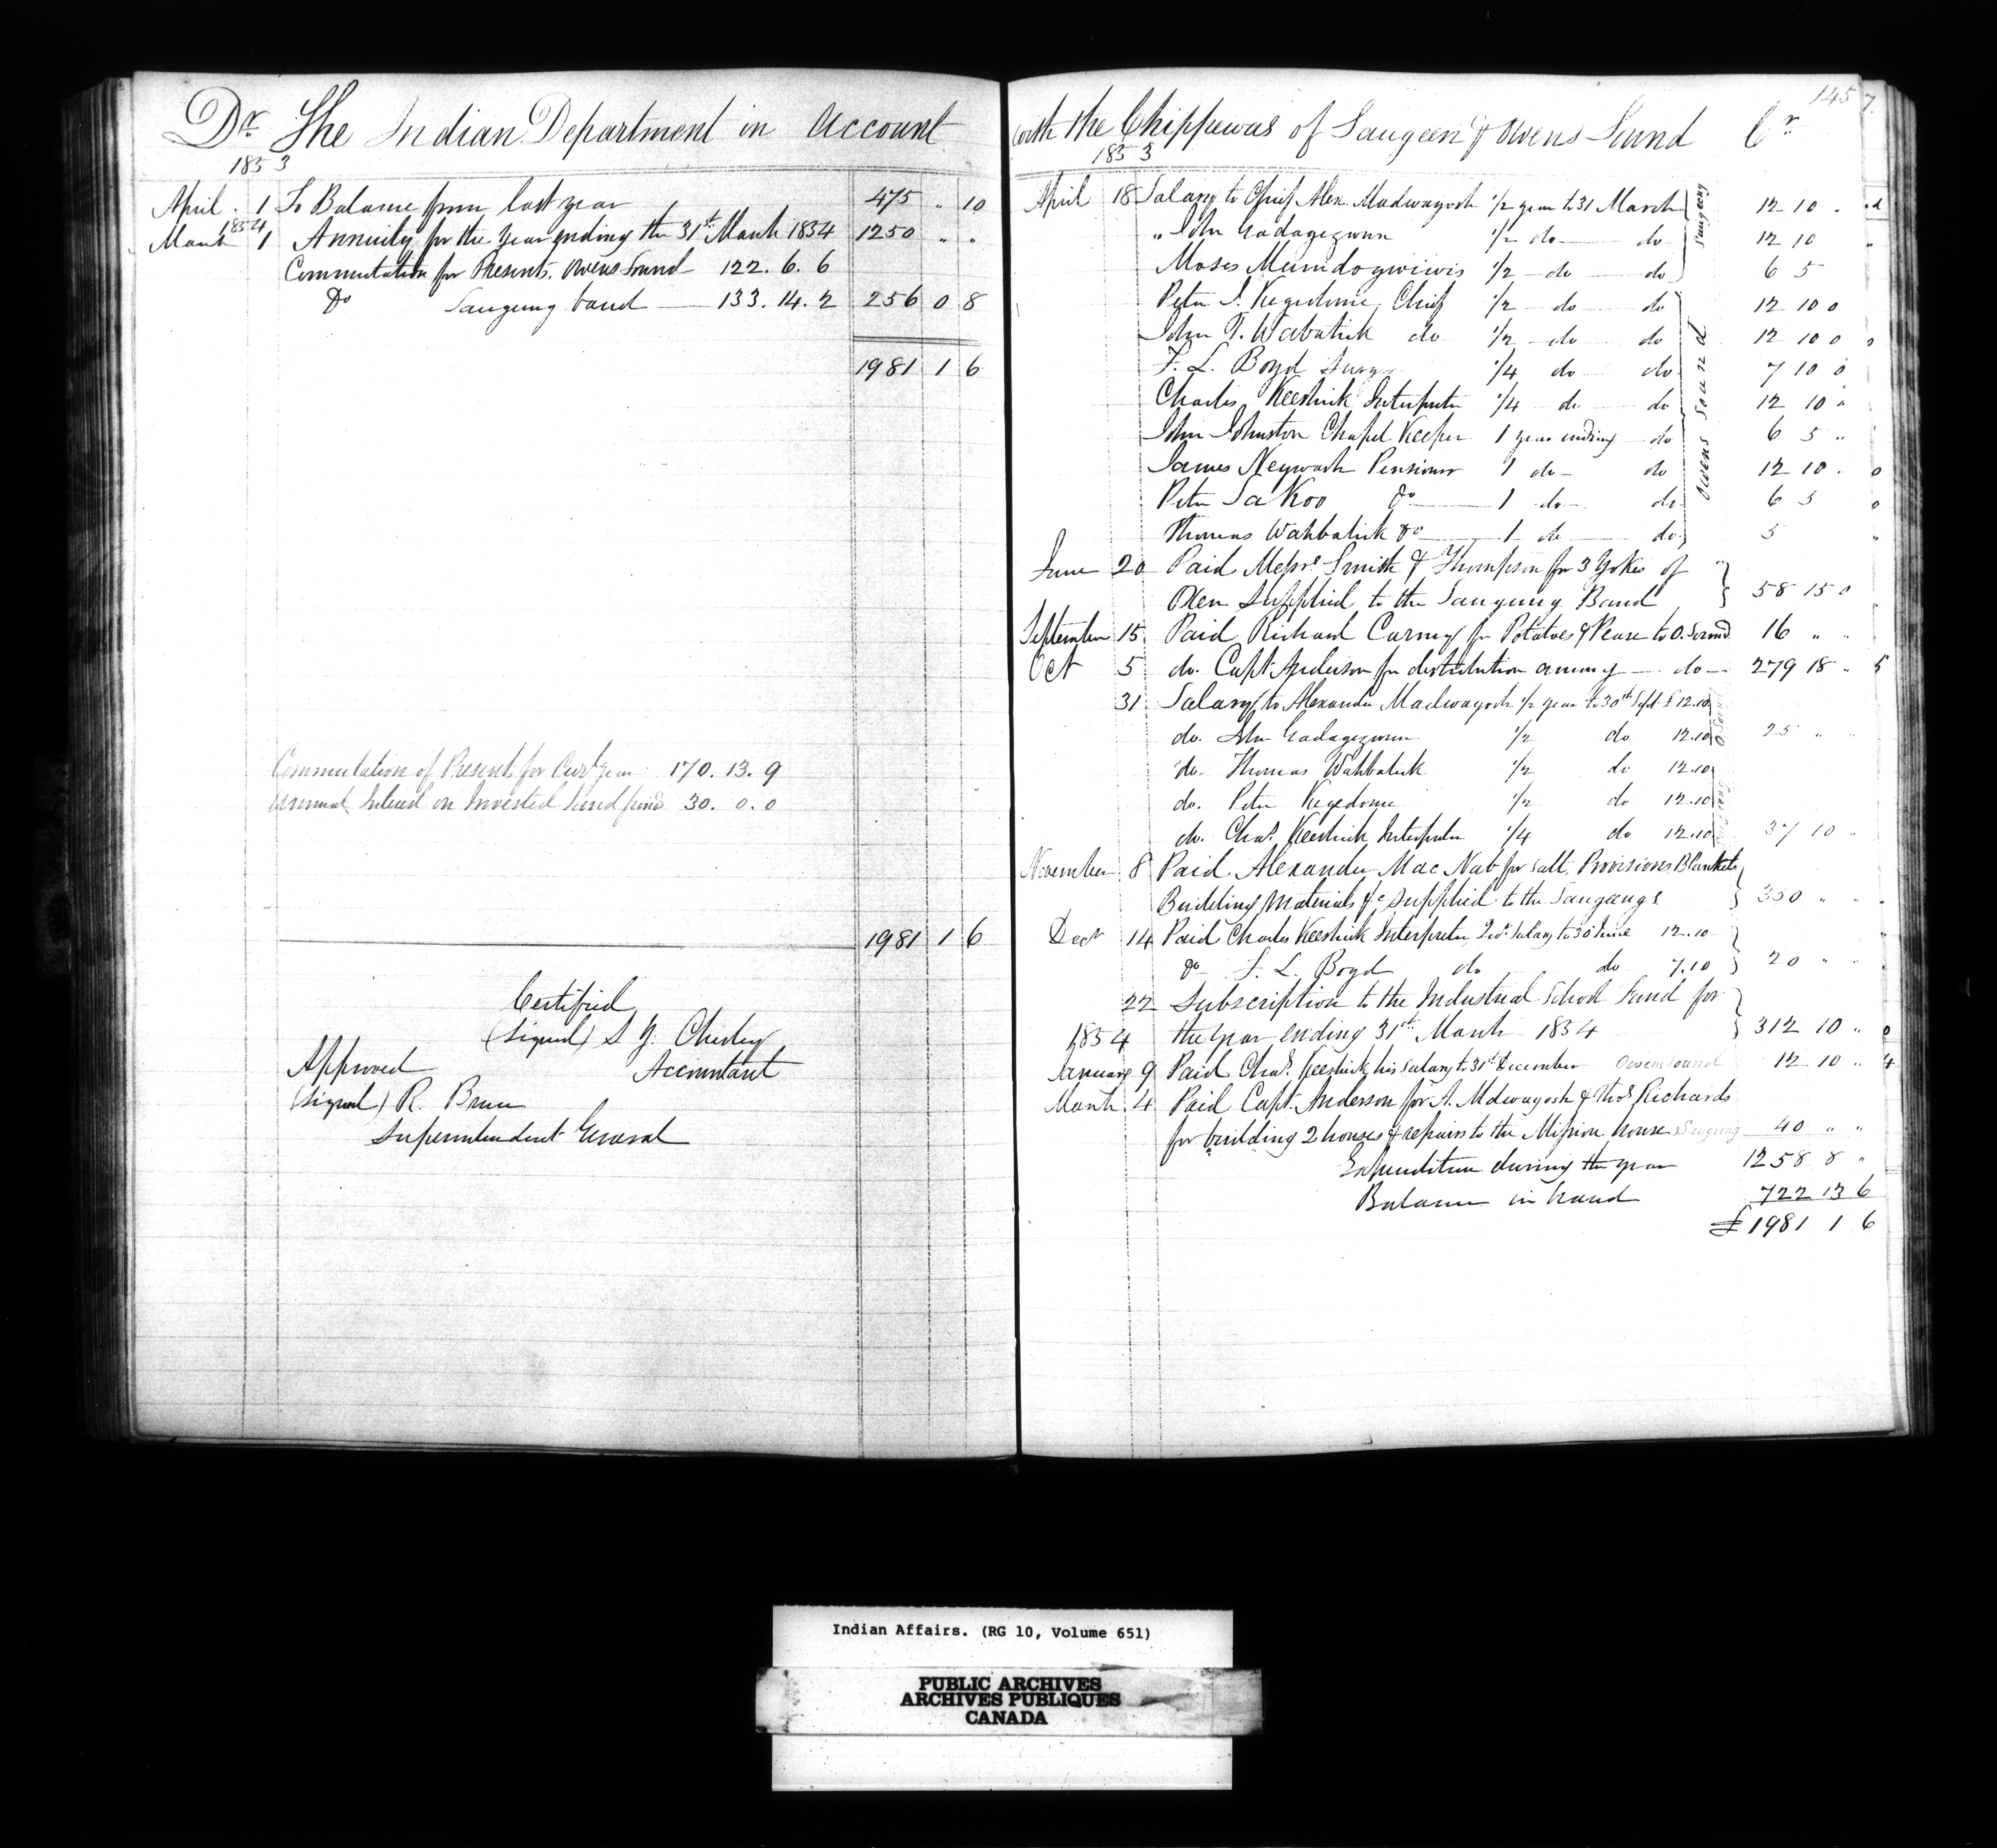 Dr. The Indian Department in Account
1853
April 1 To Balance from last year 475 " 10
1854
March 1 Annuity for the Year ending the 31st March 1854 1250 " "
Commutation for Presents. Owens Sound 122. 6. 6
Do Saugeeng band 133. 14. 2 256 0 8
1981 1 6
Commutation of Present for Curt year 170. 13. 9
Annual Interest on Invested Land fund 30. 0. 0
1981 1 6
Certified
(Signed) S. Y. Chesley
Accountant
Approved
(Signed) R. Bruce
Superintendent General
145 7
with the Chippewas of Saugeen & Owens Sound Cr.
1853
April 18 Salary to Chief Alex. Madwayosh 1/2 year to 31 March 12 10 "
" John Kadagegwun 1/2 do do 12 10
Moses Munidogwiwis 1/2 do do 6 5
Saugeeng
Peter J. Kegedonie, Chief 1/2 do do 12 10 0
John T. Wabatick do 1/2 do do 12 10 0
F. L. Boyd Surg 1/4 do do 7 10 0
Charles Keeshick Interpreter 1/4 do do 12 10 "
John Johnston Chapel Keeper 1 year ending do 6 5 "
James Neywash Pensioner 1 do do 12 10 "
Peter SaKoo Do 1 do do 6 5
Thomas Wahbatick Do 1 do do 5
Owens Sound
June 20 Paid Messrs Smith & Thompson for 3 Yokes of
Oxen Supplied to the Saugeeng Band 58 15 0
September 15 Paid Richard Carney for Potatoes & Pease to O. Sound 16 " "
Oct 5 do. Capt. Anderson for distribution among do 279 18 "
31 Salary to Alexander Madwayosh 1/2 year to 30th Sept £12.10
do. John Kadagegwun 1/2 do 12.10 25 " "
do. Thomas Wahbatick 1/2 do 12.10
do. Peter Kegedonie 1/2 do 12.10
do. Chas. Keeshick Interpreter 1/4 do 12.10 37 10 "
November 8 Paid Alexander Mac Nab for Salt, Provisions, Blankets
Building Materials &c. Supplied to the Saugeengs 350 " "
Decr 14 Paid Charles Keeshick Interpreter Salary to 30 June 12.10
do F. L. Boyd do do 7.10 20 " "
22 Subscription to the Industrial School Fund for
1854 the year ending 31st March 1854 312 10 "
January 9 Paid Chas. Keeshick his Salary to 31st December Owen Sound 12 10 "
March 4 Paid Capt. Anderson for A. Mdwayosh & Thos Richards
for building 2 houses & repairs to the Mission house Saugeeng 40 " "
Expenditure during the year 1258 8 "
Balance in hand 722 13 6
£1981 1 6
Indian Affairs. (RG 10, Volume 651)
PUBLIC ARCHIVES
ARCHIVES PUBLIQUES
CANADA